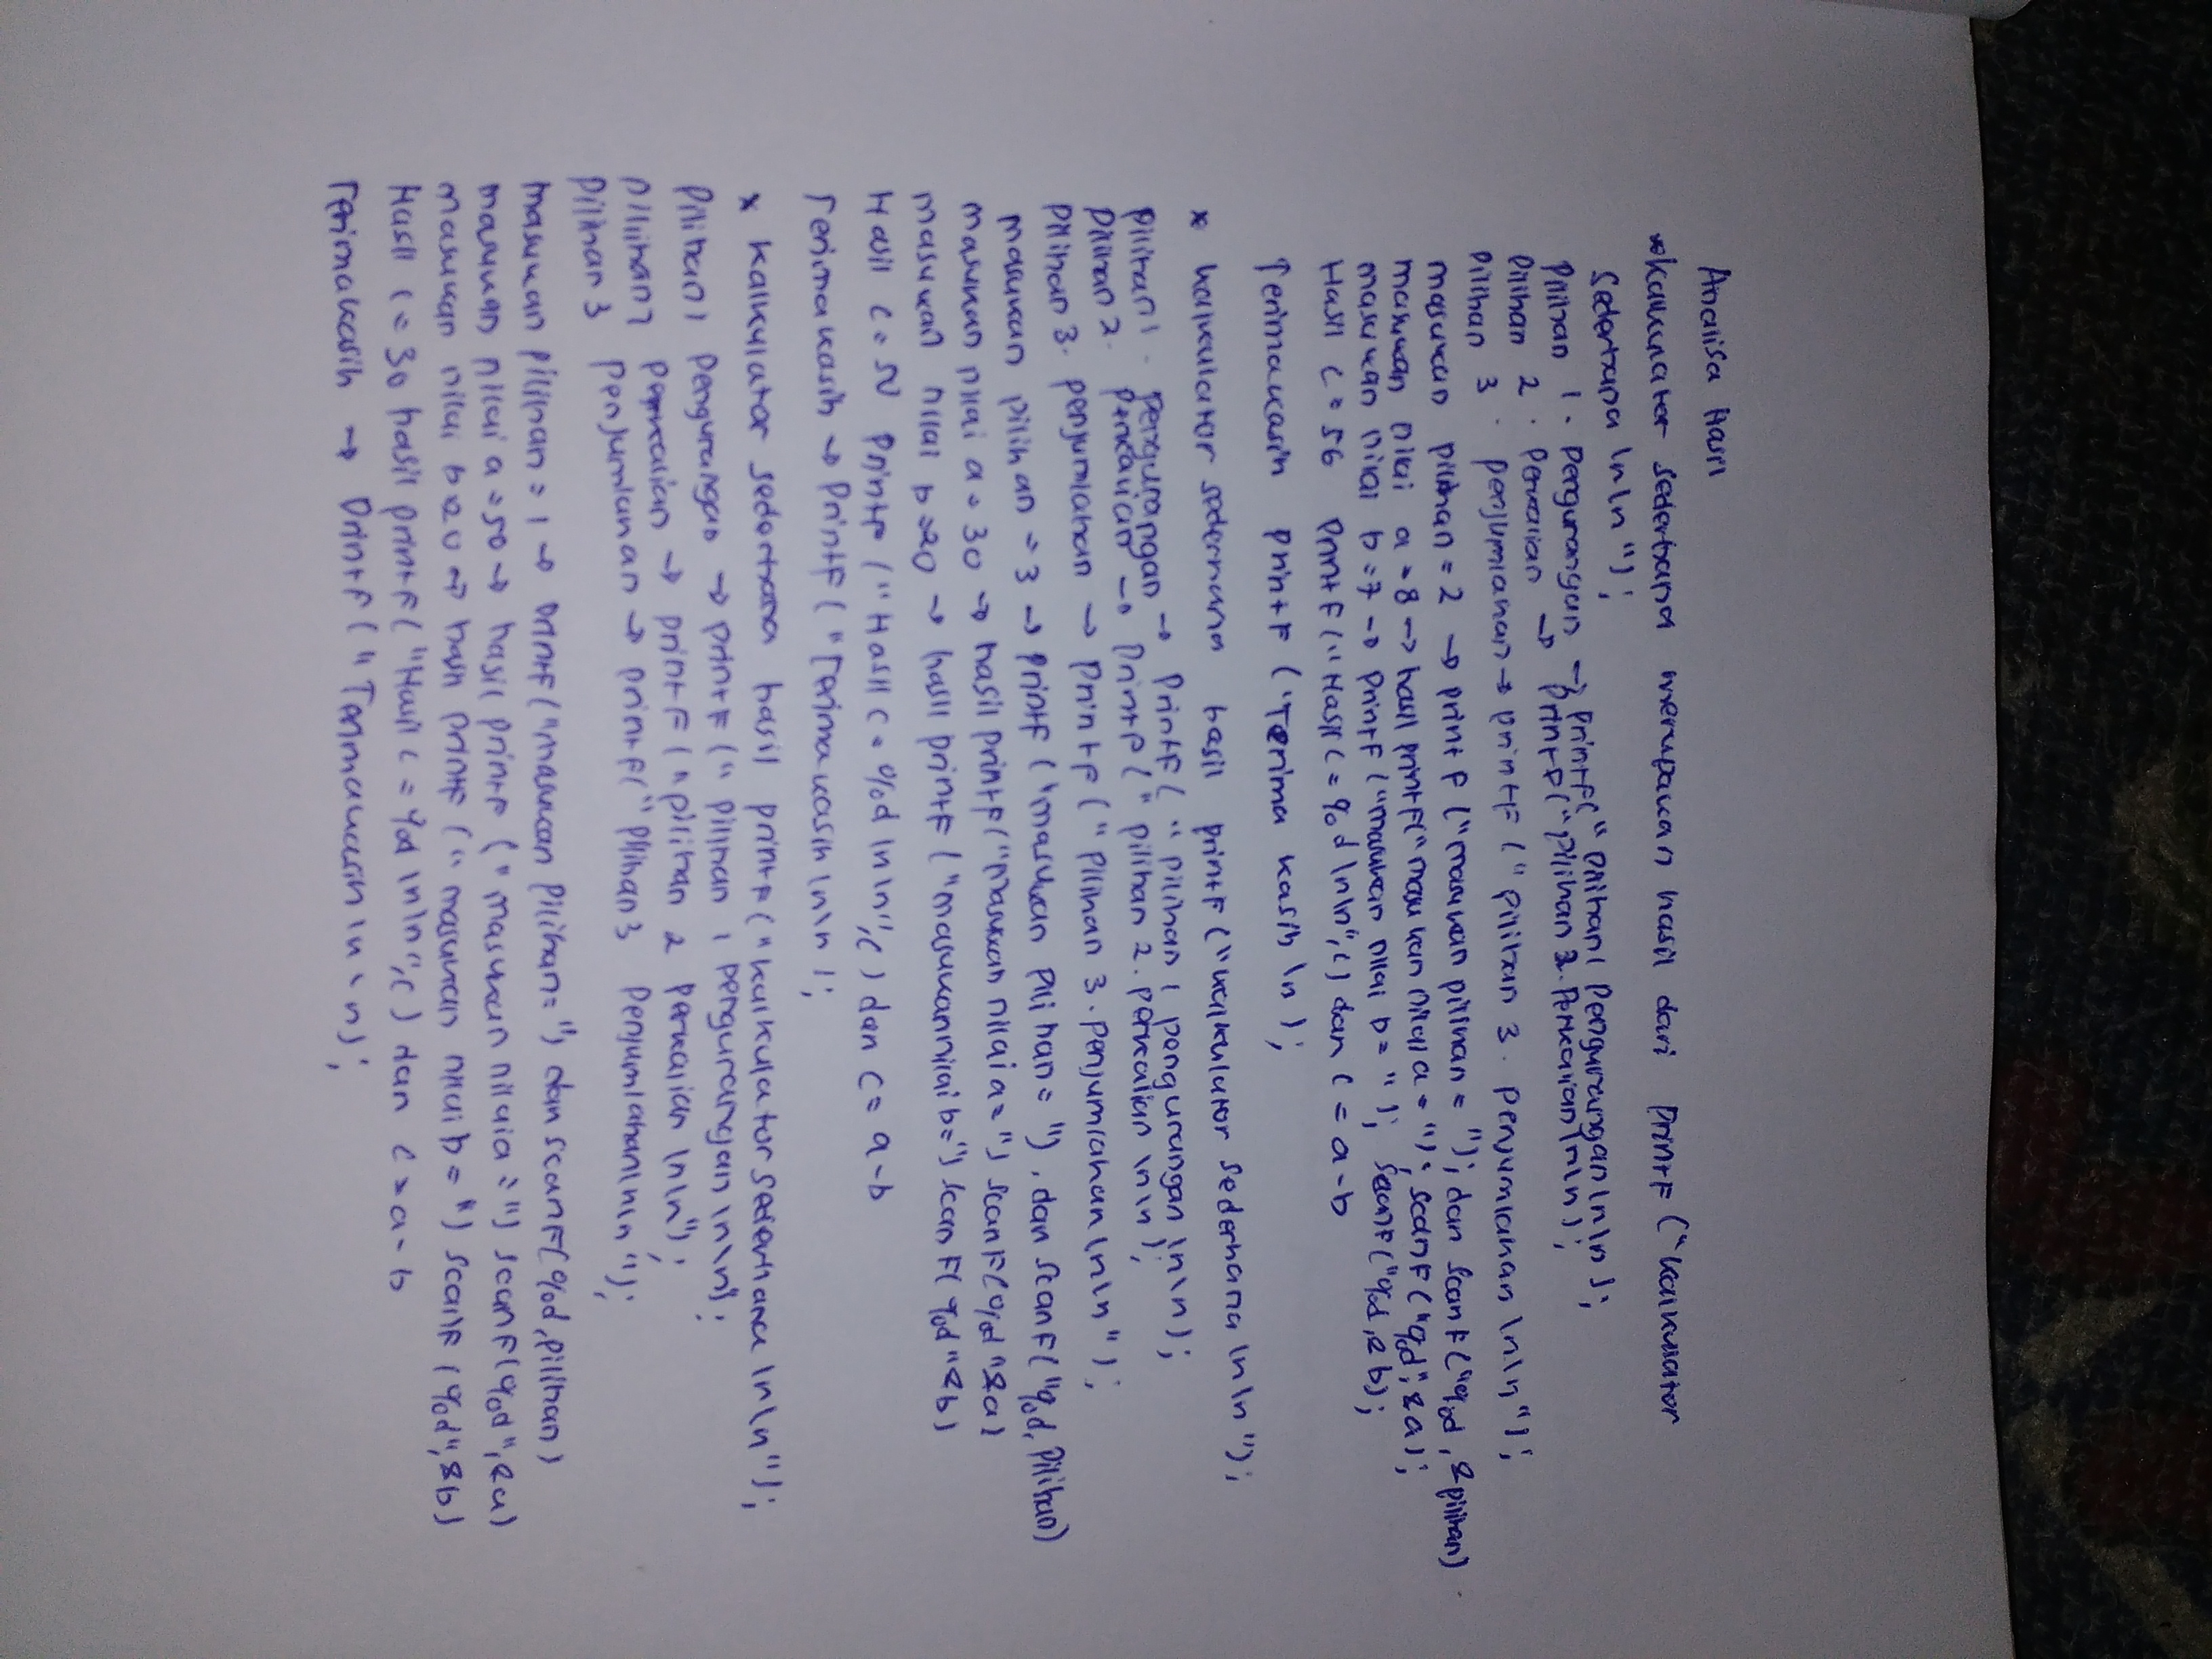 Analisa Hasil
*Kalkulator sederhana merupakan hasil dari printf ("kalkulator
sederhana \n\n");
Pilihan 1. Pengurangan → printf(" pilihan 1 pengurangan \n\n);
Pilihan 2. Perkalian → printf("pilihan 2. Perkalian \n\n);
Pilihan 3. penjumlahan → printf (" pilihan 3. penjumlahan \n\n");
masukan pilihan = 2 → printf ("masukan pilihan = "); dan scanf ("%d, &pilihan).
masukan nilai a = 8 → hasil printf("masukan nilai a = "); scanf ("%d", &a);
masukan nilai b = 7 → printf ("masukan nilai b = "); scanf ("%d, &b);
Hasil c = 56 printf ("Hasil c = %d \n\n",c) dan c = a - b
Terimakasih printf ("Terima kasih \n );
* kalkulator sederhana hasil printf ("kalkulator sederhana \n\n");
pilihan 1. pengurangan → printf( " pilihan 1 pengurangan \n\n);
pilihan 2. perkalian → printf (" pilihan 2. perkalian \n\n );
pilihan 3. penjumlahan → printf (" pilihan 3. penjumlahan \n\n");
masukan pilihan = 3 → printf ("masukan pilihan = "), dan scanf ("%d, Pilihan)
masukan nilai a = 30 → hasil printf ("Masukan nilai a = ") scanf (%d "&a)
masukan nilai b = 20 → hasil printf ("masukan nilai b = ") scanf( %d "&b)
Hasil c = printf ("Hasil c = %d \n\n",c) dan c = a - b
Terimakasih → printf ("Terimakasih \n\n );
* kalkulator sederhana hasil printf ("kalkulator sederhana \n\n");
Pilihan 1 pengurangan → printf (" pilihan 1 pengurangan \n\n);
pilihan perkalian → printf ("pilihan 2 perkalian \n\n");
pilihan 3 penjumlahan → printf(" pilihan 3 penjumlahan\n\n");
masukan pilihan = 1 → printf ("masukan pilihan= ") dan scanf(%d, pilihan)
masukan nilai a = 50 → hasil printf ("masukan nilai a = ") scanf (%d", &a)
masukan nilai b = 20 → hasil printf ("masukan nilai b = ") scanf (%d", &b)
Hasil c = 30 hasil printf ("Hasil c = %d \n\n",c) dan c = a - b
Terimakasih → printf (" Terimakasih \n \n);